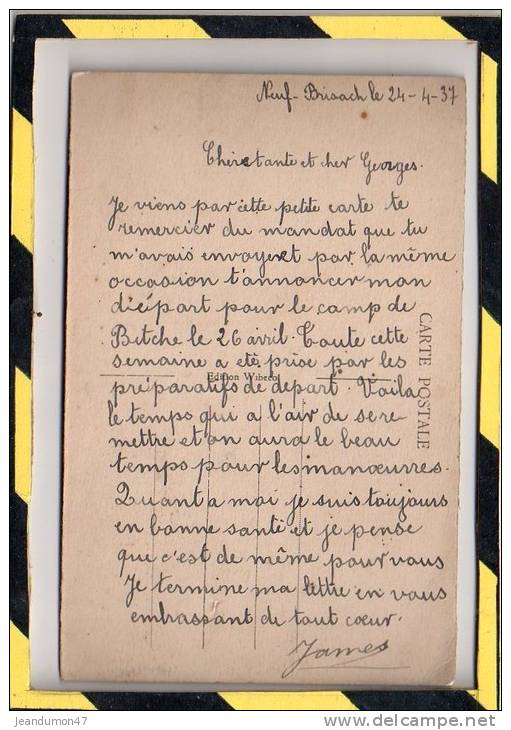 Neuf-Brisach le 24-4-37
Chère tante et cher Georges.
Je viens par cette petite carte te
remercier du mandat que tu
m'avais envoyer et par la même
occasion t'annoncer mon
départ pour le camp de
Bitche le 26 avril. Toute cette
semaine a etè prise par les
préparatifs de départ. Voila
le temps qui a l'air de se re-
mettre et on aura le beau
temps pour les manœuvres.
Quant a moi je suis toujours
en bonne santé et je pense
que c'est de même pour vous
Je termine ma lettre en vous
embrassant de tout cœur.
James
Edition Wibecol
CARTE POSTALE
jeandumon47
delcampe.net